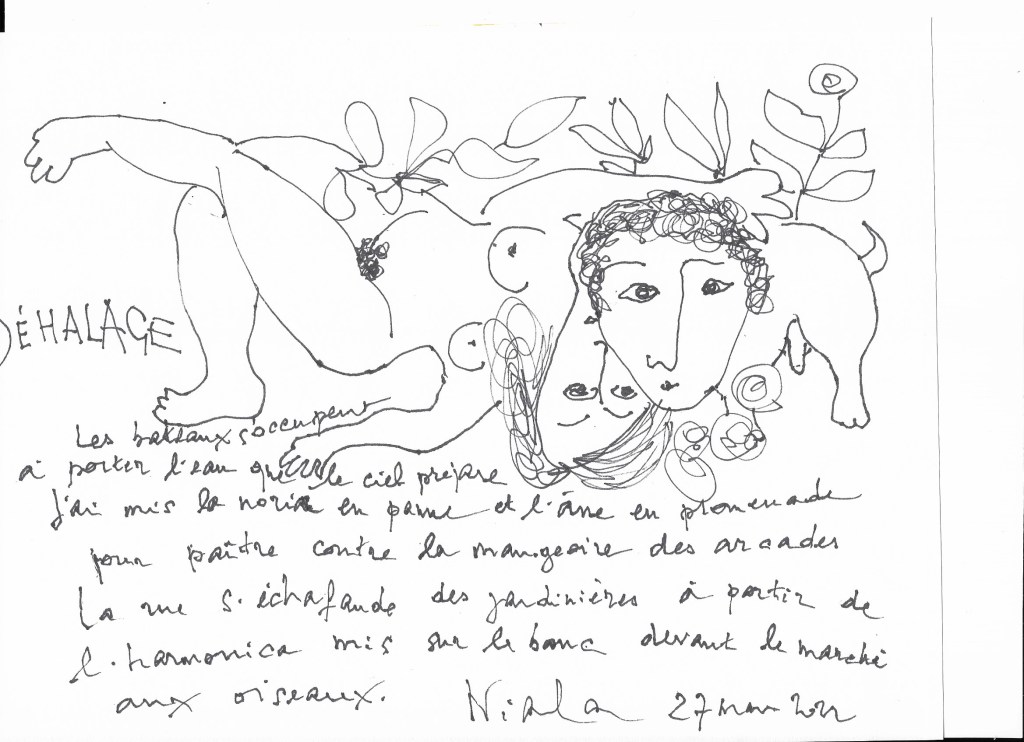 DÉHALAGE
Les bateaux s'occupent
à porter l'eau que le ciel prépare
J'ai mis la noria en panne et l'âne en promenade
pour paître contre la mangeoire des arcades
La rue s'échafaude des jardinières à partir de
l'harmonica mis sur le banc devant le marché
aux oiseaux.
Niala 27 mars 2022